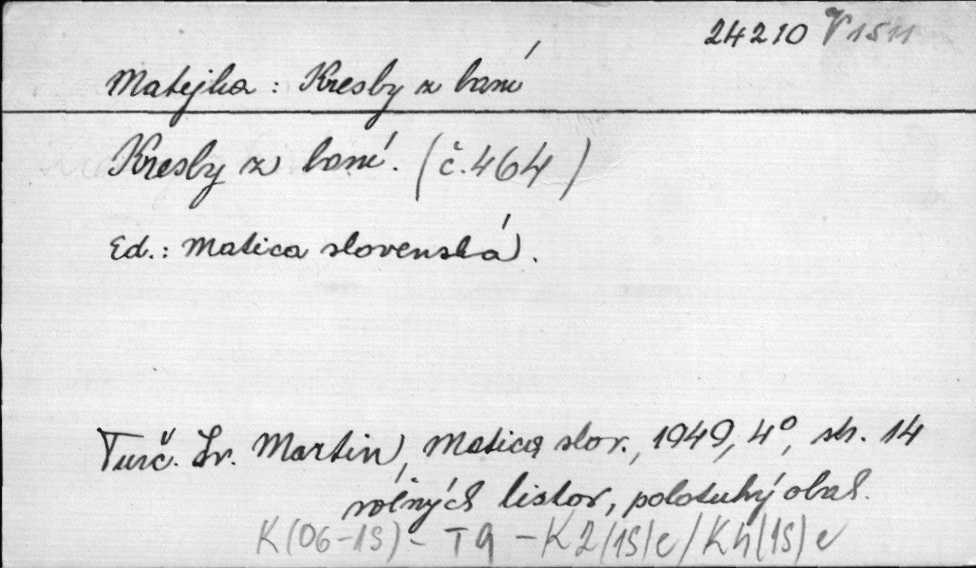 24210 V 1511
Matejka : Kresby z baní
Kresby z baní. (č. 464)
Ed.: Matica slovenská.
Turč. Sv. Martin, Matica slov., 1949, 4°, str. 14
voľných listov, polotuhý obal.
K(06-1S) - T9 - K2/(1S)c/K4/(1S)c